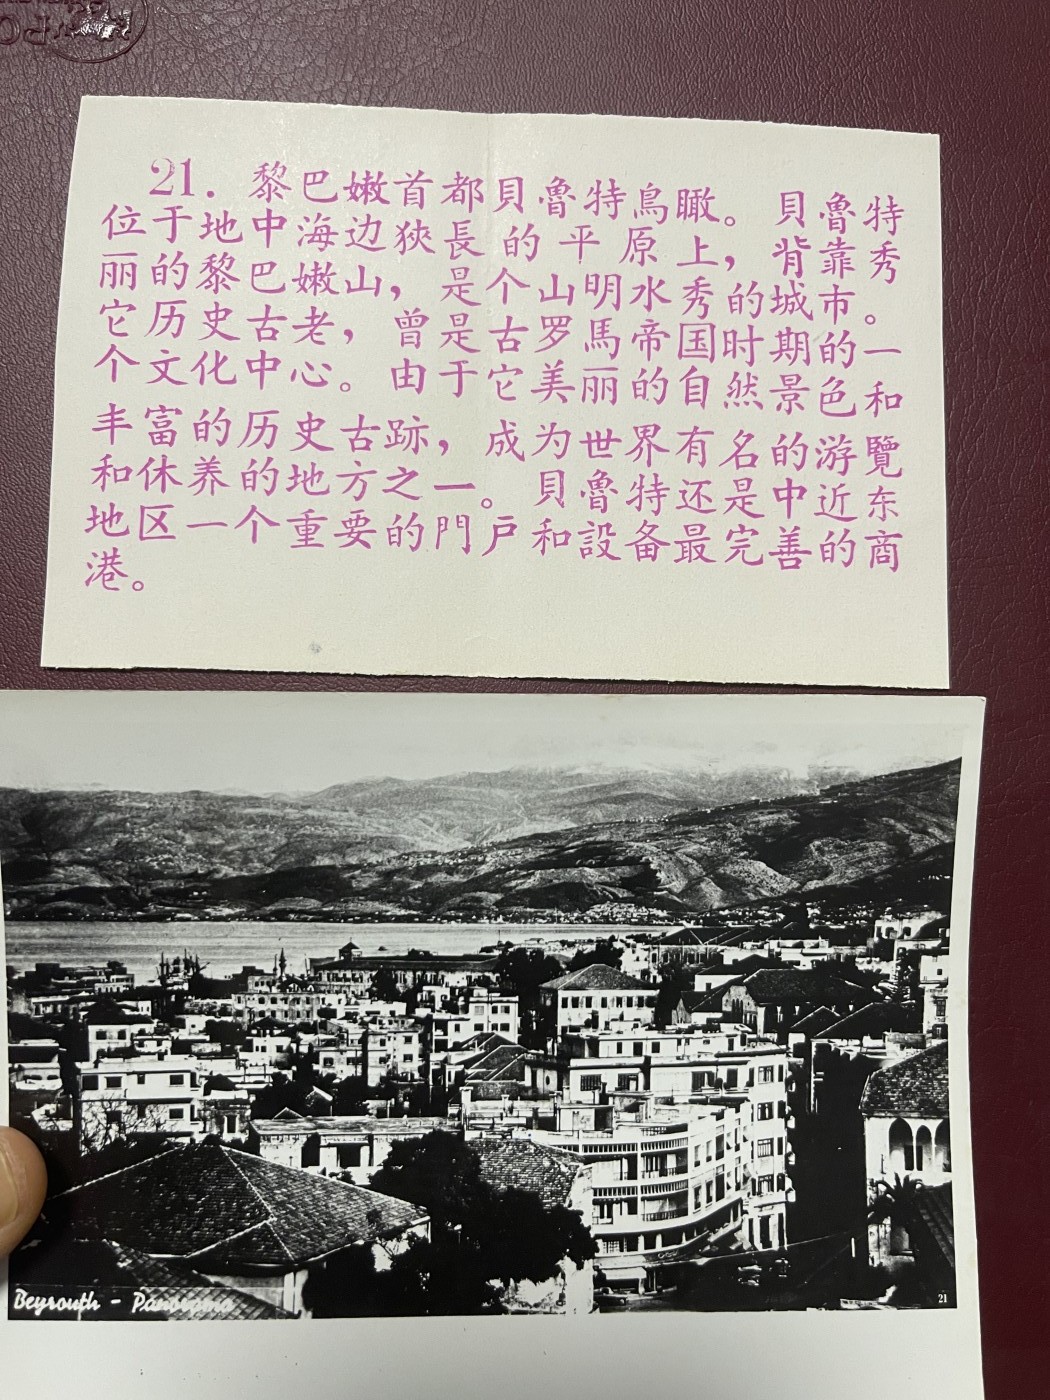 21. 黎巴嫩首都貝魯特鳥瞰。貝魯特
位于地中海边狹長的平原上，背靠秀
丽的黎巴嫩山，是个山明水秀的城市。
它历史古老，曾是古罗馬帝国时期的一
个文化中心。由于它美丽的自然景色和
丰富的历史古跡，成为世界有名的游覽
和休养的地方之一。貝魯特还是中近东
地区一个重要的門户和設备最完善的商
港。
Beyrouth - Panorama
21